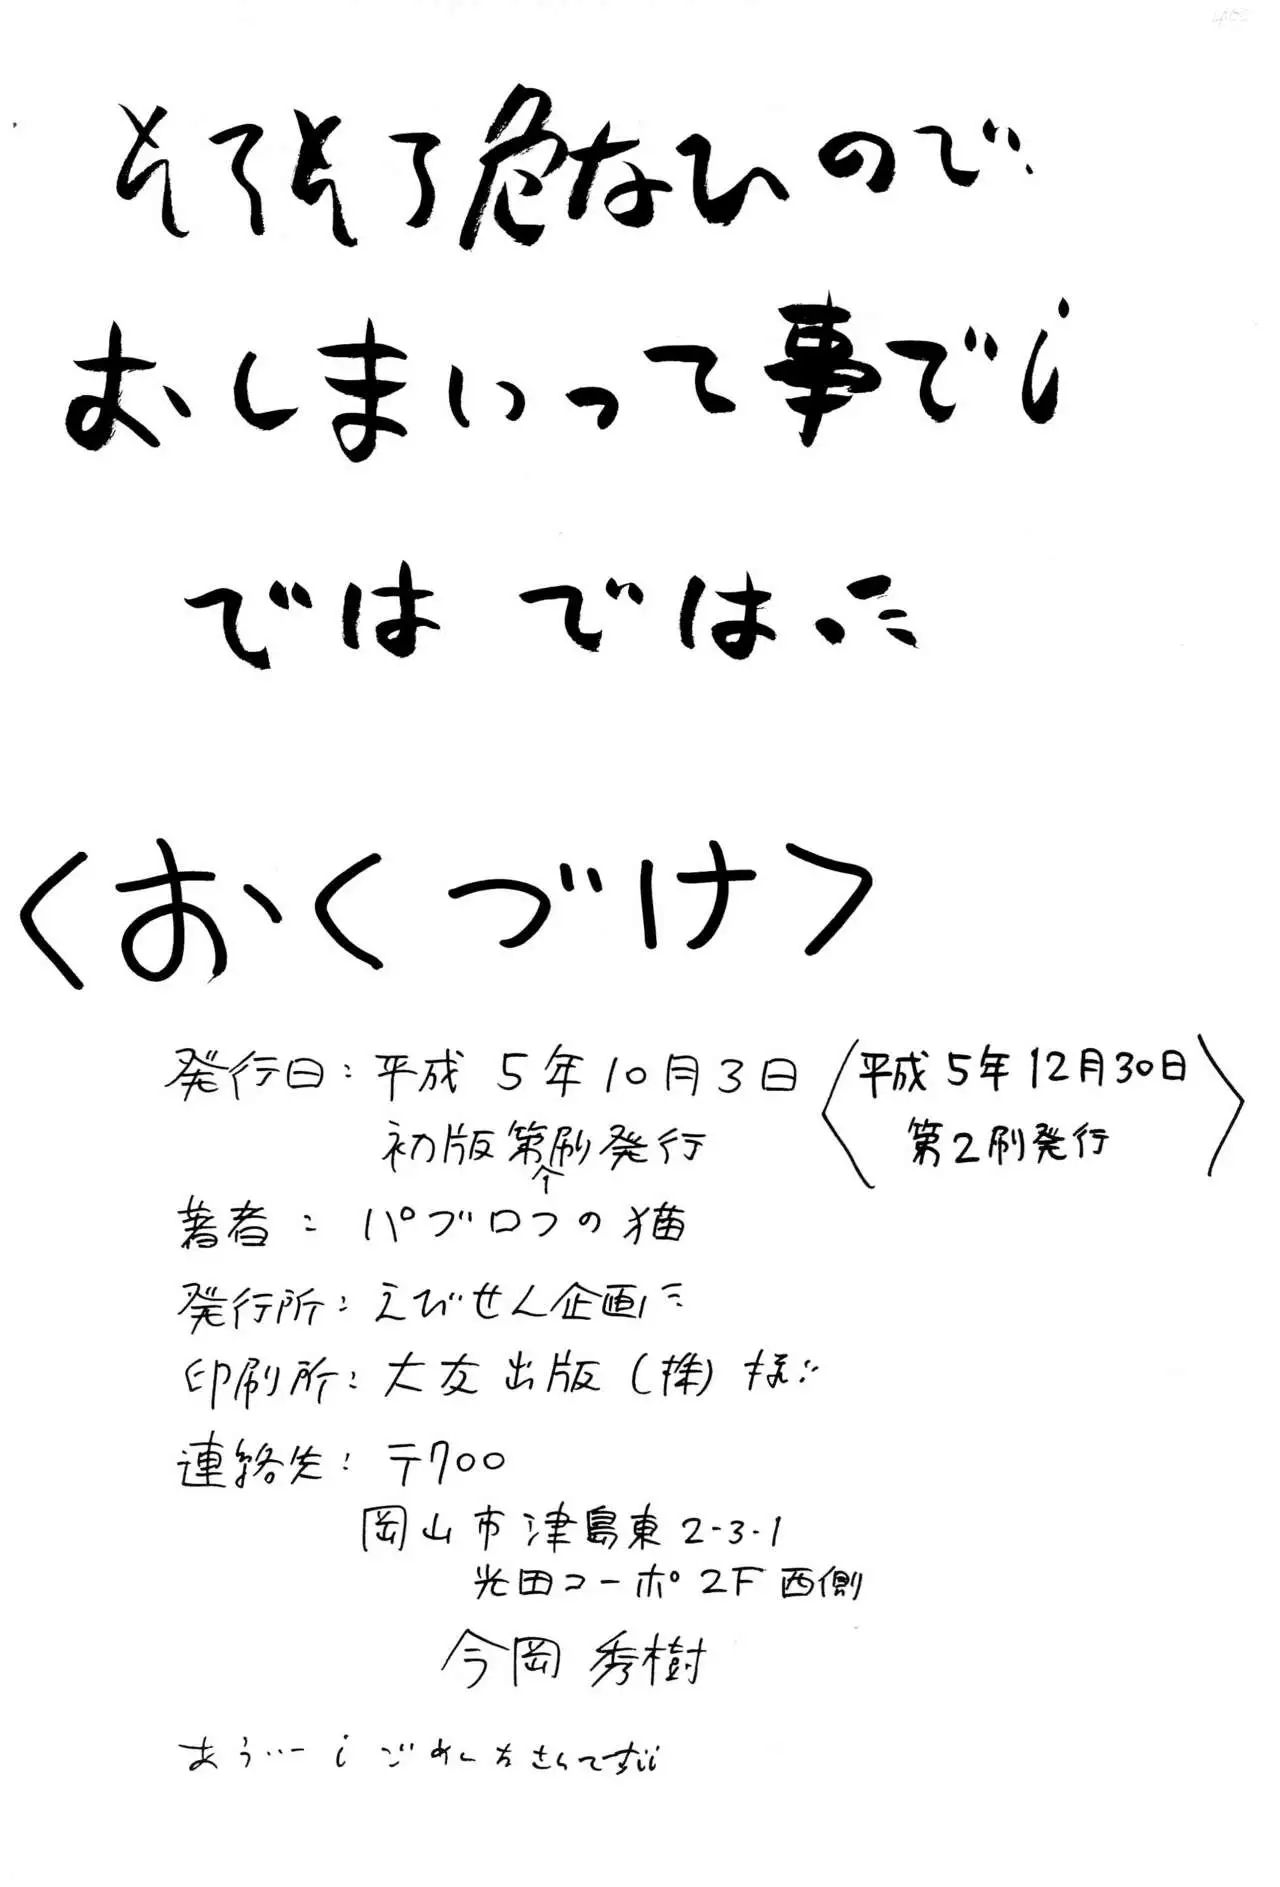 そろそろ危ないので、
おしまいって事で!
ではでは
〈おくづけ〉
発行日:平成 5年10月3日 〈平成 5年12月30日
初版第1刷発行 第2刷発行〉
著者:パブロフの猫
発行所:えびせん企画
印刷所:大友出版(株)様
連絡先:〒700
岡山市津島東2-3-1
光田コーポ2F西側
今岡 秀樹